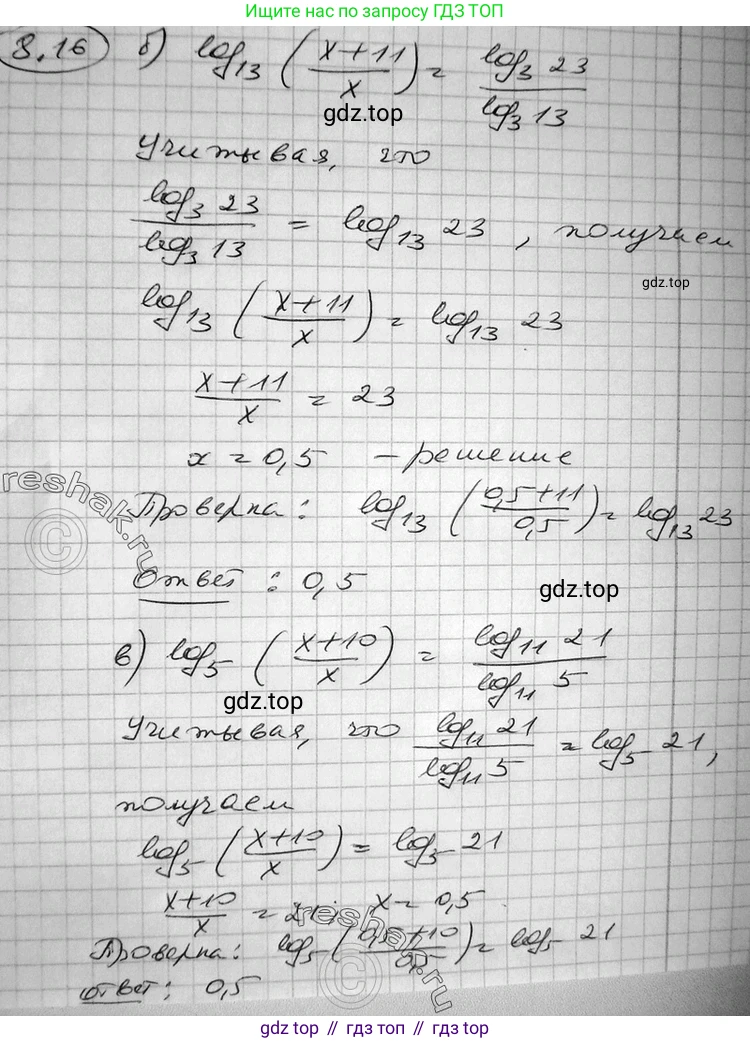 открывается по запросу ГДЗ ТОП
8.16 б) log₁₃ ((x+11)/x) = log₃ 23 / log₃ 13
gdz.top
Учитывая, что
log₃ 23 / log₃ 13 = log₁₃ 23, получаем
gdz.top
log₁₃ ((x+11)/x) = log₁₃ 23
(x+11)/x = 23
x = 0,5 – решение
reshak.ru
Проверка: log₁₃ ((0,5+11)/0,5) = log₁₃ 23
©
Ответ: 0,5
gdz.top
в) log₅ ((x+10)/x) = log₁₁ 21 / log₁₁ 5
gdz.top
Учитывая, что log₁₁ 21 / log₁₁ 5 = log₅ 21,
получаем
log₅ ((x+10)/x) = log₅ 21
(x+10)/x = 21; x = 0,5
reshak.ru
Проверка: log₅ ((0,5+10)/0,5) = log₅ 21
©
ответ: 0,5
gdz.top // гдз топ // gdz.top